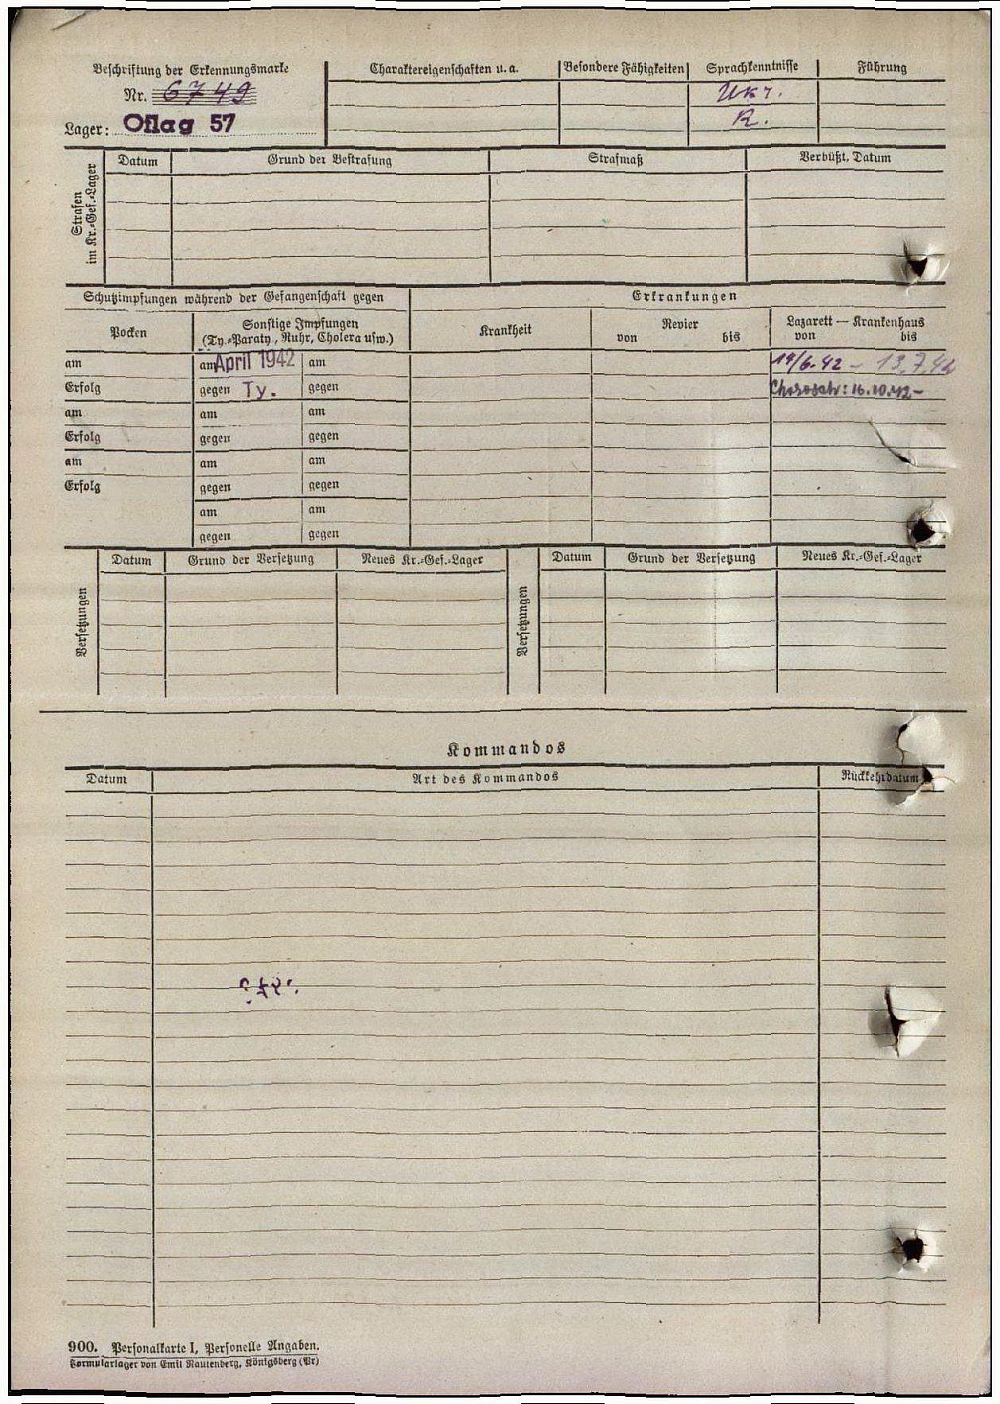 Beschriftung der Erkennungsmarke
Nr. 6749
Lager: Oflag 57
Charaktereigenschaften u. a.
Besondere Fähigkeiten
Sprachkenntnisse
Ukr.
R.
Führung
Strafen
im Kr.-Gef.-Lager
Datum
Grund der Bestrafung
Strafmaß
Verbüßt, Datum
Schutzimpfungen während der Gefangenschaft gegen
Erkrankungen
Pocken
Sonstige Impfungen
(Ty.-Paraty., Ruhr, Cholera usw.)
Krankheit
Revier
von bis
Lazarett — Krankenhaus
von bis
am am April 1942 am 14/6.42 – 13.7.42
Erfolg gegen Ty. gegen 16.10.42–
am am am
Erfolg gegen gegen
am am am
Erfolg gegen gegen
am am
gegen gegen
Versetzungen
Datum Grund der Versetzung Neues Kr.-Gef.-Lager
Versetzungen
Datum Grund der Versetzung Neues Kr.-Gef.-Lager
Kommandos
Datum Art des Kommandos Rückkehrdatum
900. Personalkarte I, Personelle Angaben.
Formularlager von Emil Rautenberg, Königsberg (Pr)